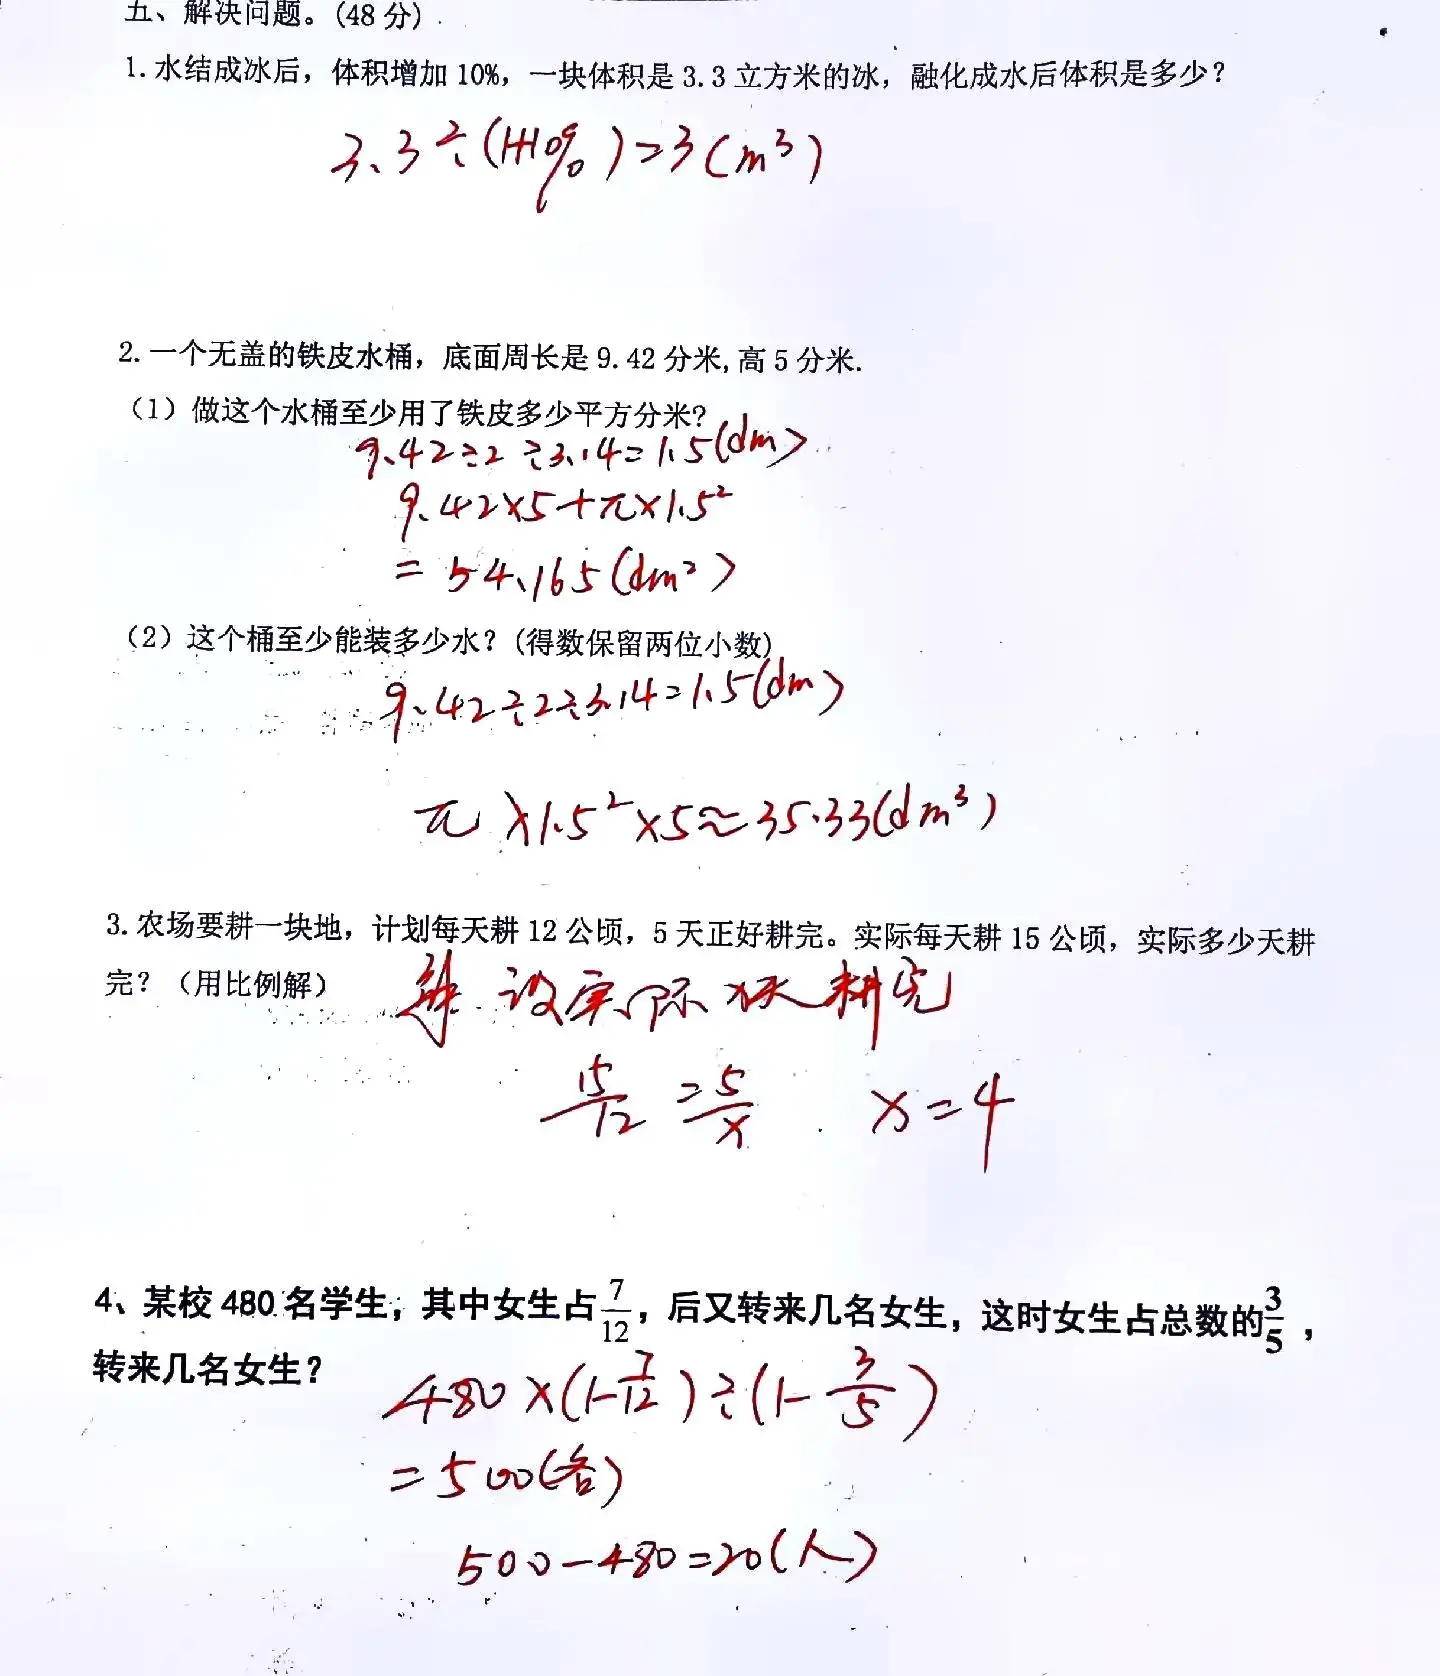 五、解决问题。(48分)
1.水结成冰后，体积增加10%，一块体积是3.3立方米的冰，融化成水后体积是多少？
3.3÷(1+10%)=3(m³)
2.一个无盖的铁皮水桶，底面周长是9.42分米,高5分米.
（1）做这个水桶至少用了铁皮多少平方分米?
9.42÷2÷3.14=1.5(dm)
9.42×5+π×1.5²
=54.165(dm²)
（2）这个桶至少能装多少水？(得数保留两位小数)
9.42÷2÷3.14=1.5(dm)
π×1.5²×5≈35.33(dm³)
3.农场要耕一块地，计划每天耕12公顷，5天正好耕完。实际每天耕15公顷，实际多少天耕
完？（用比例解）
解 设实际x天耕完
15/12=5/x x=4
4、某校480名学生，其中女生占7/12，后又转来几名女生，这时女生占总数的3/5，
转来几名女生？
480×(1-7/12)÷(1-3/5)
=500(名)
500-480=20(人)